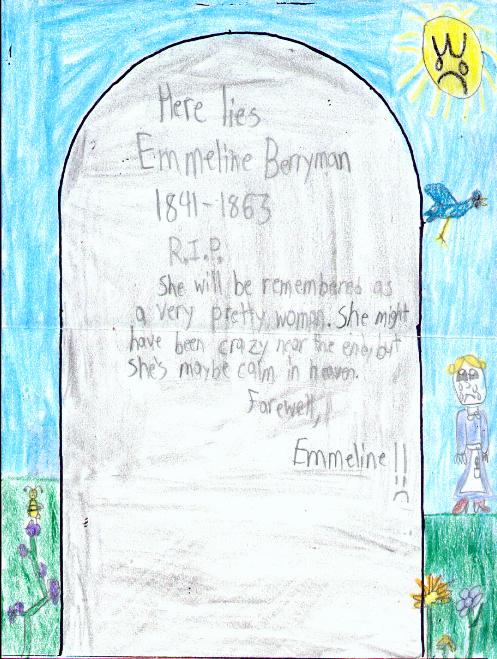 Here lies
Emmeline Berryman
1841-1863
R.I.P.
She will be remembered as
a very pretty woman. She might
have been crazy near the end, but
she's maybe calm in heaven.
Farewell,
Emmeline!!